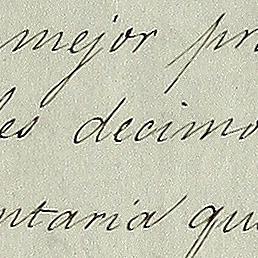 mejor pr
les decimo
ntaria qu